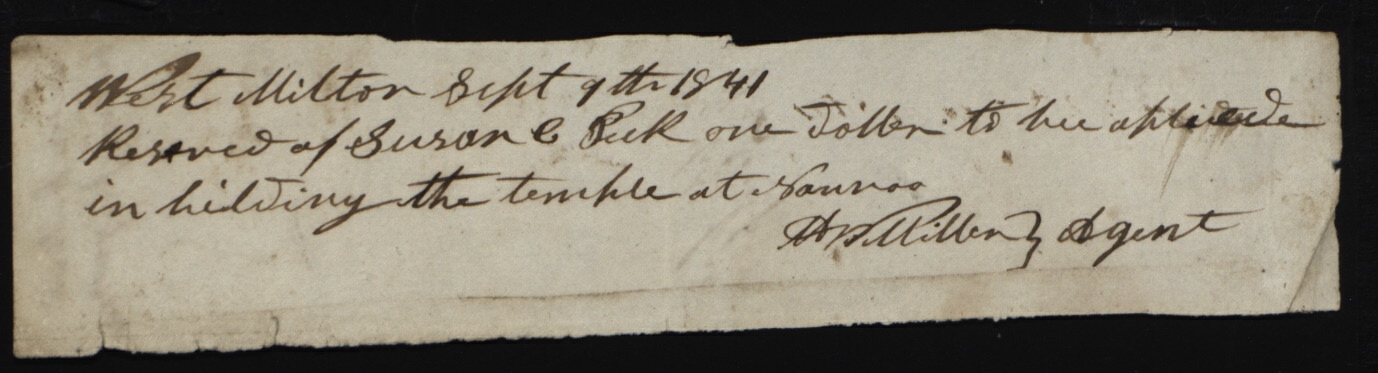 West Milton Sept 9th 1841
Reseved of Susan C Peek one doller to bee apliede
in bilding the temple at Nauvoo
Miller } Agent